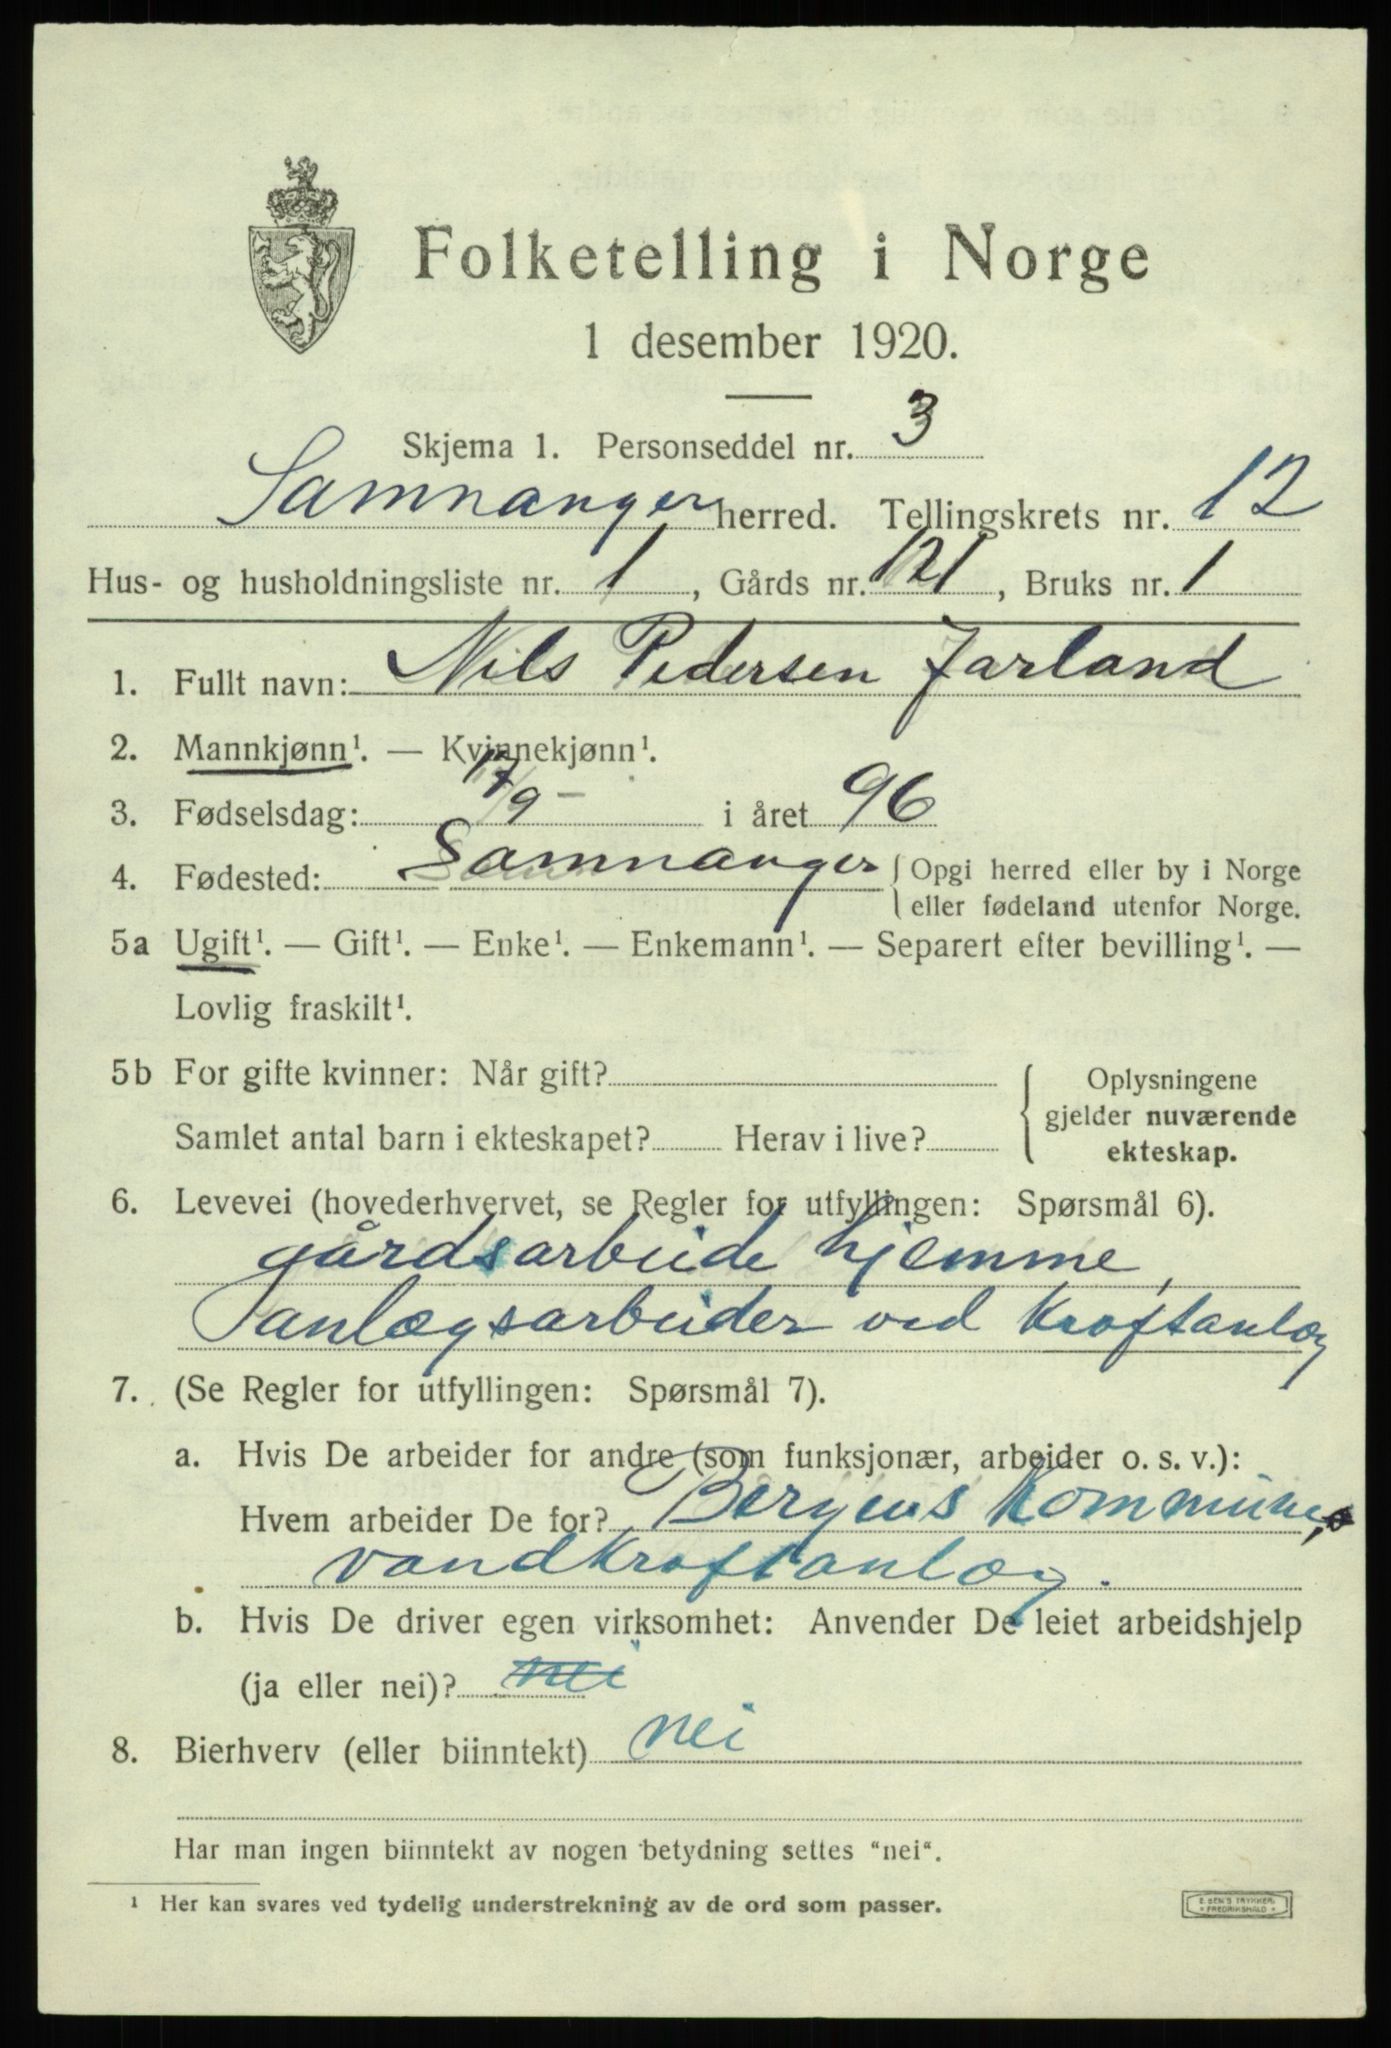 Folketelling i Norge
1 desember 1920.
Skjema 1. Personseddel nr. 3
Samnanger herred. Tellingskrets nr. 12
Hus- og husholdningsliste nr. 1, Gårds nr. 121, Bruks nr. 1
1. Fullt navn: Nils Pedersen Jarland
2. Mannkjønn¹. — Kvinnekjønn¹.
3. Fødselsdag: 17/9 — i året 96
4. Fødested: Samnanger { Opgi herred eller by i Norge
eller fødeland utenfor Norge.
5a Ugift¹. — Gift¹. — Enke¹. — Enkemann¹. — Separert efter bevilling¹. —
Lovlig fraskilt¹.
5b For gifte kvinner: Når gift? { Oplysningene
gjelder nuværende
Samlet antal barn i ekteskapet? Herav i live?
ekteskap.
6. Levevei (hovederhvervet, se Regler for utfyllingen: Spørsmål 6).
gårdsarbeide hjemme,
anlægsarbeider ved Kraftanlæg
7. (Se Regler for utfyllingen: Spørsmål 7).
a. Hvis De arbeider for andre (som funksjonær, arbeider o. s. v.):
Hvem arbeider De for? Bergens Kommune,
vandkraftanlæg.
b. Hvis De driver egen virksomhet: Anvender De leiet arbeidshjelp
(ja eller nei)? nei
8. Bierhverv (eller biinntekt) nei
Har man ingen biinntekt av nogen betydning settes "nei".
¹ Her kan svares ved tydelig understrekning av de ord som passer.
E. SEM'S TRYKKERI
FREDRIKSHALD